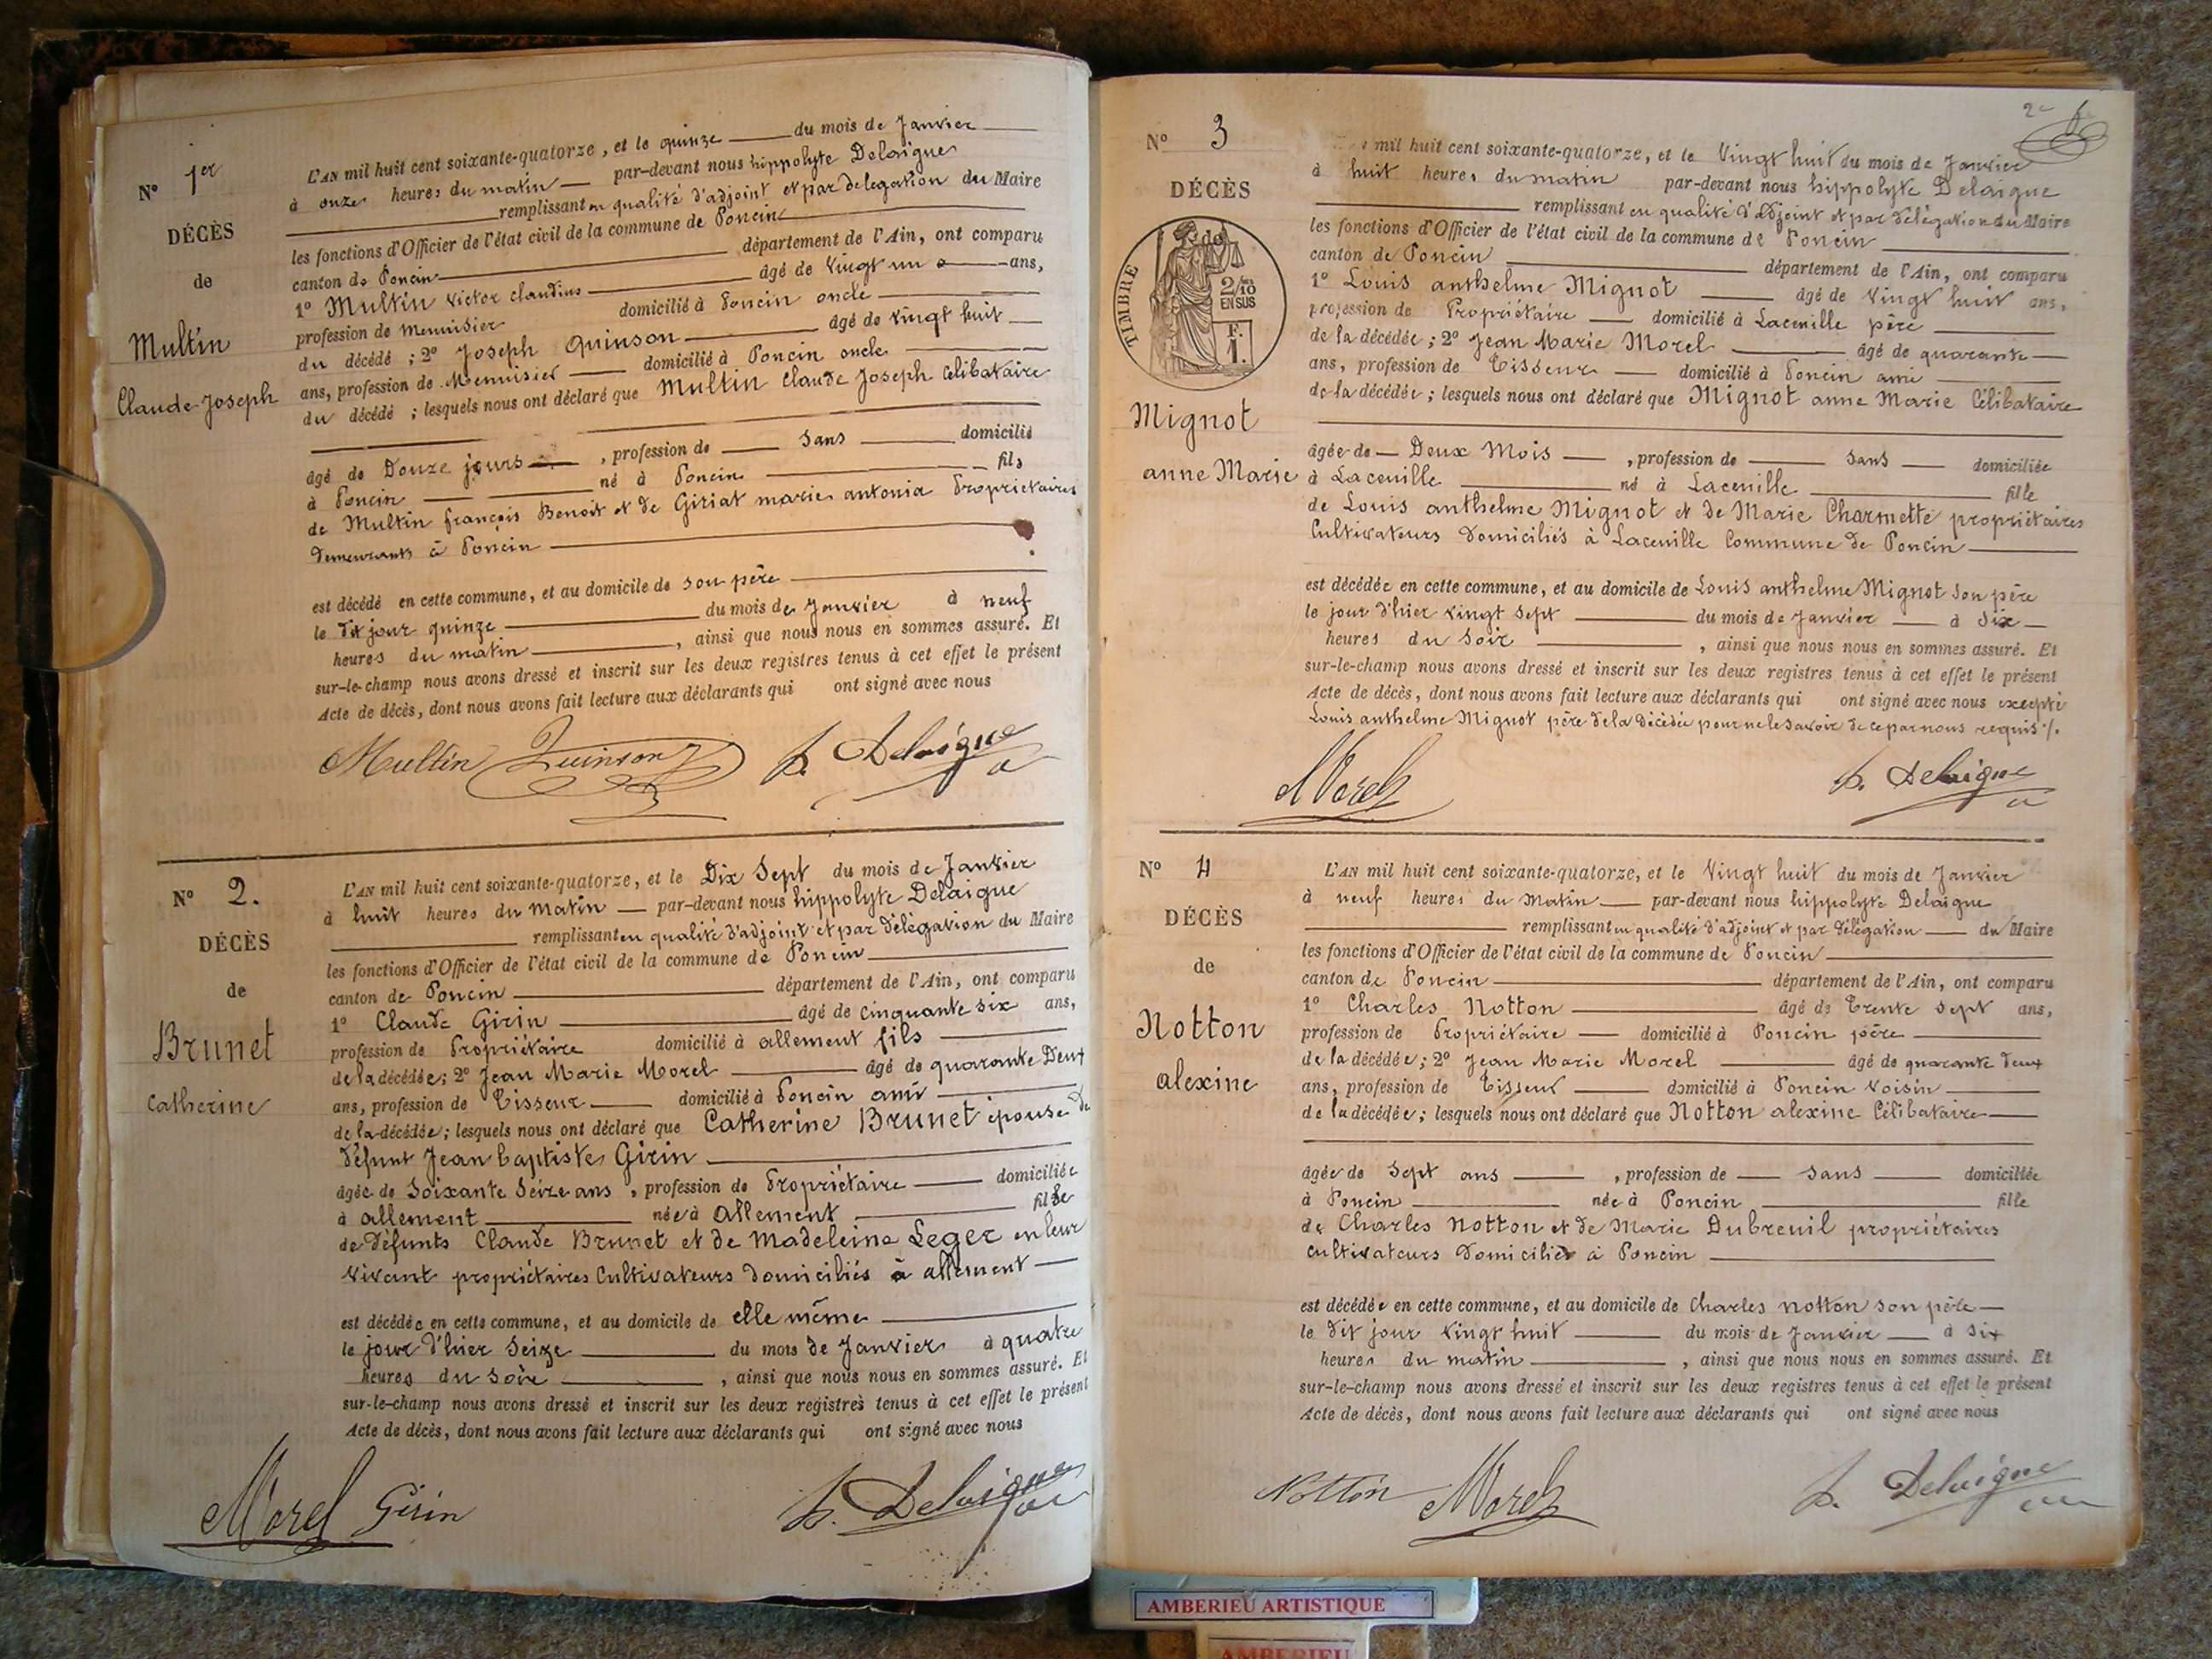 Nº 1er
DÉCÈS
de
Multin
Claude-Joseph
L'AN mil huit cent soixante-quatorze, et le quinze du mois de Janvier
à onze heures du matin par-devant nous hippolyte Delaigue
remplissant en qualité d'adjoint et par delegation du Maire
les fonctions d'Officier de l'état civil de la commune de Poncin
canton de Poncin département de l'Ain, ont comparu
1º Multin Victor Claudius âgé de Vingt un ans,
profession de menuisier domicilié à Poncin oncle
du décédé ; 2º Joseph Quinson âgé de Vingt huit
ans, profession de Menuisier domicilié à Poncin oncle
du décédé ; lesquels nous ont déclaré que Multin Claude Joseph Célibataire
âgé de Douze jours , profession de Sans domicilié
à Poncin né à Poncin fils
de Multin françois Benoit et de Giriat marie antonia Propriétaires
demeurants à Poncin
est décédé en cette commune, et au domicile de son père
le dit jour quinze du mois de Janvier à neuf
heures du matin , ainsi que nous nous en sommes assuré. Et
sur-le-champ nous avons dressé et inscrit sur les deux registres tenus à cet effet le présent
Acte de décès, dont nous avons fait lecture aux déclarants qui ont signé avec nous
Multin Quinson h. Delaigue
Nº 2.
DÉCÈS
de
Brunet
Catherine
L'AN mil huit cent soixante-quatorze, et le Dix Sept du mois de Janvier
à huit heures du matin par-devant nous hippolyte Delaigue
remplissant en qualité d'adjoint et par délégation du Maire
les fonctions d'Officier de l'état civil de la commune de Poncin
canton de Poncin département de l'Ain, ont comparu
1º Claude Girin âgé de Cinquante six ans,
profession de Propriétaire domicilié à allement fils
de la décédée; 2º Jean Marie Morel âgé de quarante Deux
ans, profession de Tisseur domicilié à Poncin ami
de la décédée; lesquels nous ont déclaré que Catherine Brunet épouse de
défunt Jean baptiste Girin
âgée de Soixante Seize ans , profession de Propriétaire domiciliée
à allement née à allement fille
de défunts Claude Brunet et de Madeleine Leger en leur
vivant propriétaires Cultivateurs domiciliés à allement
est décédée en cette commune, et au domicile de elle même
le jour d'hier Seize du mois de Janvier à quatre
heures du soir , ainsi que nous nous en sommes assuré. Et
sur-le-champ nous avons dressé et inscrit sur les deux registres tenus à cet effet le présent
Acte de décès, dont nous avons fait lecture aux déclarants qui ont signé avec nous
Morel Girin h. Delaigue
2e
Nº 3
DÉCÈS
de
TIMBRE
2/10
EN SUS
F.
1.
Mignot
anne Marie
mil huit cent soixante-quatorze, et le Vingt huit du mois de Janvier
à huit heures du matin par-devant nous hippolyte Delaigue
remplissant en qualité d'adjoint et par délégation du Maire
les fonctions d'Officier de l'état civil de la commune de Poncin
canton de Poncin département de l'Ain, ont comparu
1º Louis anthelme Mignot âgé de Vingt huit ans,
profession de Propriétaire domicilié à Lacueille père
de la décédée ; 2º Jean Marie Morel âgé de quarante
ans, profession de Tisseur domicilié à Poncin ami
de la décédée ; lesquels nous ont déclaré que Mignot anne Marie Célibataire
âgée de Deux Mois , profession de Sans domiciliée
à Lacueille né à Lacueille fille
de Louis anthelme Mignot et de Marie Charmette propriétaires
Cultivateurs domiciliés à Lacueille Commune de Poncin
est décédée en cette commune, et au domicile de Louis anthelme Mignot son père
le jour d'hier vingt sept du mois de Janvier à Six
heures du soir , ainsi que nous nous en sommes assuré. Et
sur-le-champ nous avons dressé et inscrit sur les deux registres tenus à cet effet le présent
Acte de décès, dont nous avons fait lecture aux déclarants qui ont signé avec nous excepté
Louis anthelme Mignot père de la décédée pour ne le savoir de ce par nous requis ./.
Morel h. Delaigue
Nº 4
DÉCÈS
de
Notton
alexine
L'AN mil huit cent soixante-quatorze, et le Vingt huit du mois de Janvier
à neuf heures du matin par-devant nous hippolyte Delaigue
remplissant en qualité d'adjoint et par délégation du Maire
les fonctions d'Officier de l'état civil de la commune de Poncin
canton de Poncin département de l'Ain, ont comparu
1º Charles Notton âgé de Trente Sept ans,
profession de Propriétaire domicilié à Poncin père
de la décédée; 2º Jean Marie Morel âgé de quarante deux
ans, profession de Tisseur domicilié à Poncin Voisin
de la décédée; lesquels nous ont déclaré que Notton alexine Célibataire
âgée de Sept ans , profession de Sans domiciliée
à Poncin née à Poncin fille
de Charles Notton et de Marie Dubreuil propriétaires
Cultivateurs domiciliés à Poncin
est décédée en cette commune, et au domicile de Charles notton son père
le dit jour vingt huit du mois de Janvier à six
heures du matin , ainsi que nous nous en sommes assuré. Et
sur-le-champ nous avons dressé et inscrit sur les deux registres tenus à cet effet le présent
Acte de décès, dont nous avons fait lecture aux déclarants qui ont signé avec nous
Notton Morel h. Delaigue
AMBERIEU ARTISTIQUE
AMBERIEU